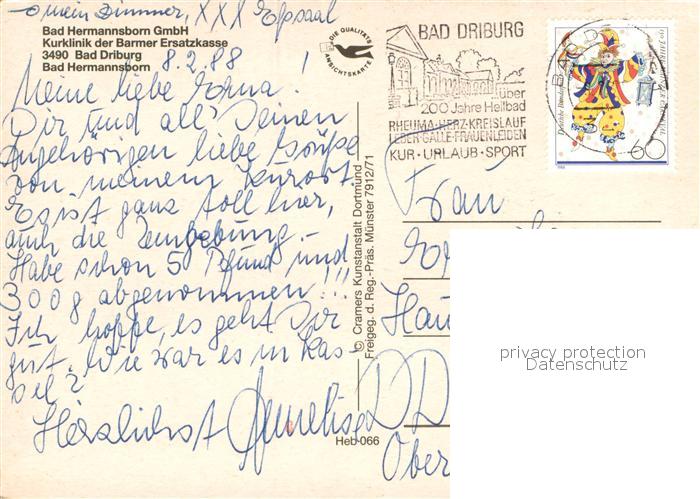 o mein Zimmer, XXX Eßsaal
Bad Hermannsborn GmbH
Kurklinik der Barmer Ersatzkasse
3490 Bad Driburg
Bad Hermannsborn
8.2.88 !
Meine liebe Erna!
Dir und all' Deinen
Angehörigen liebe Grüße
von meinem Kurort.
Es ist ganz toll hier,
auch die Umgebung.
Habe schon 5 Pfund und
300 g abgenommen!!!
Ich hoffe, es geht Dir
gut. Wie war es in Kas-
sel?
Herzlichst Annelise
DIE QUALITÄTS
ANSICHTSKARTE
© Cramers Kunstanstalt Dortmund
Freigeg. d. Reg.-Präs. Münster 7912/71
Heb 066
BAD DRIBURG
über
200 Jahre Heilbad
RHEUMA-HERZ-KREISLAUF
LEBER-GALLE-FRAUENLEIDEN
KUR · URLAUB · SPORT
BAD D
60
Frau
Hau
DD
Ober
privacy protection
Datenschutz